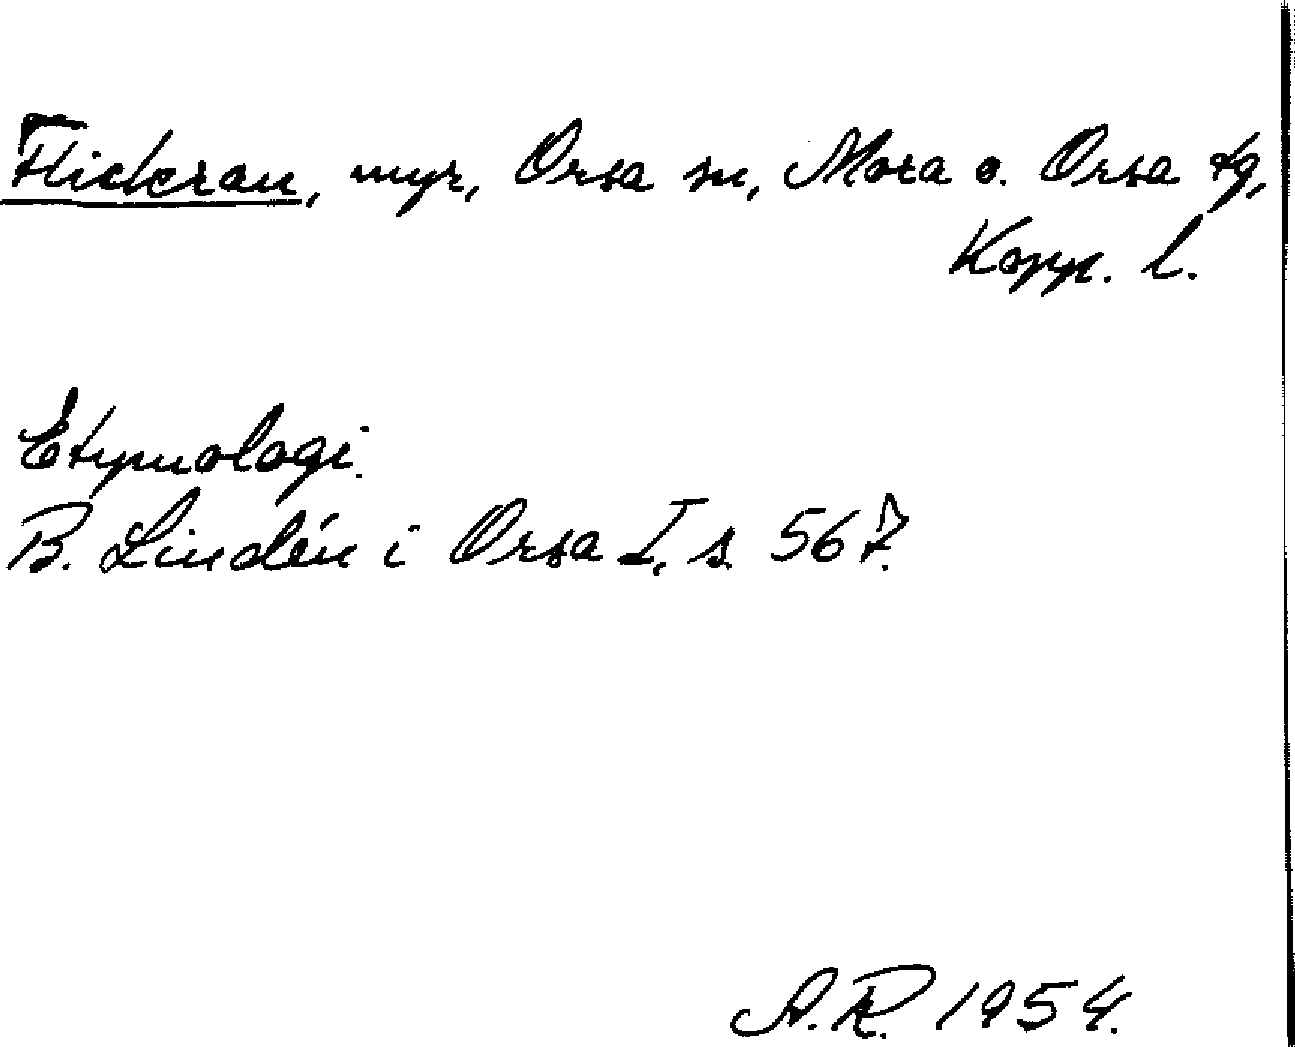 Flickran, myr, Orsa sn, Mora o. Orsa tg,
Kopp. l.
Etymologi.
B. Lindén i Orsa I, s. 567.
A.R. 1954.